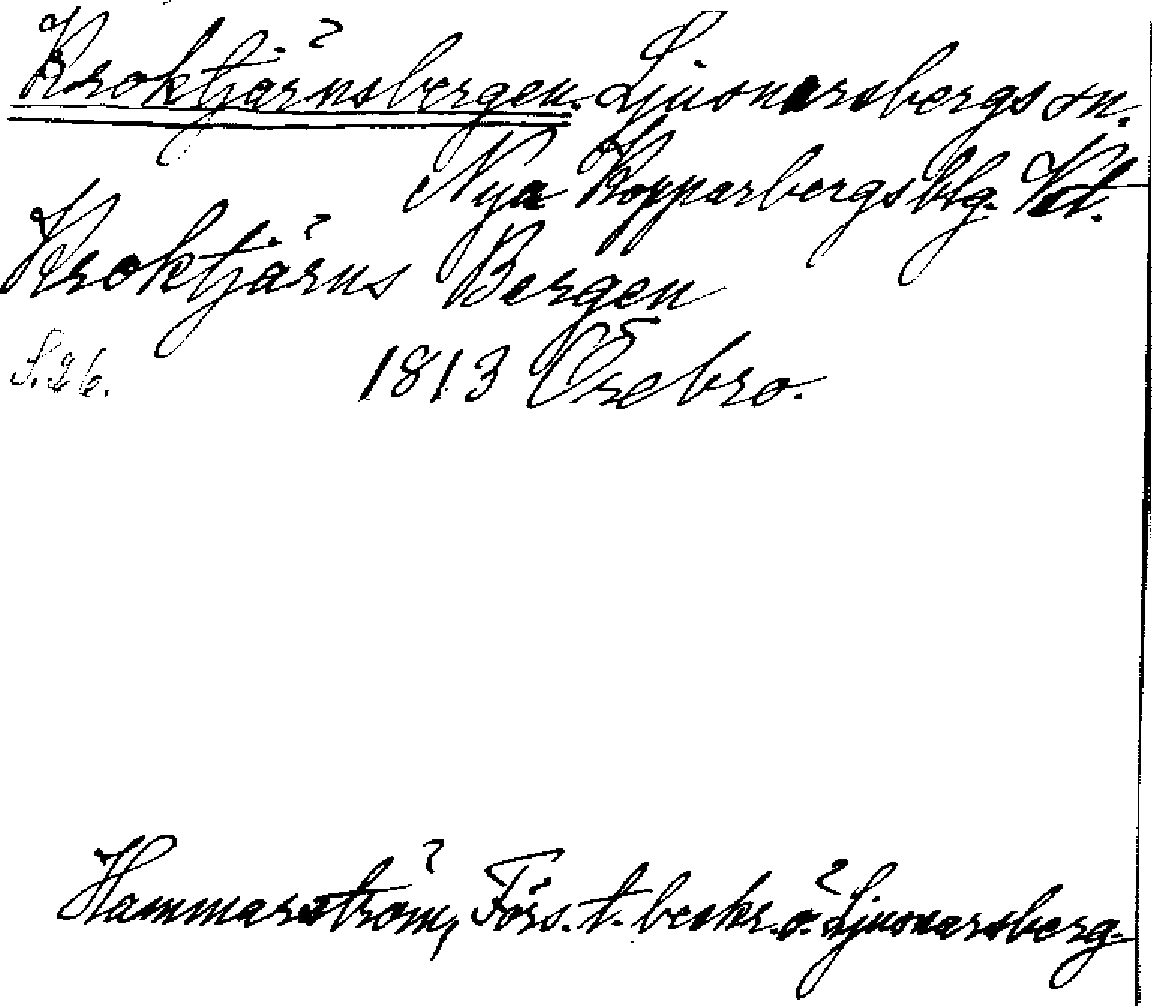 Kroktjärnsbergen. Ljusnarsbergs sn.
Nya Kopparbergs blg. Vd.
Kroktjärns Bergen
S. 26. 1813 Örebro.
Hammarström, Förs. t. beskr. ö. Ljusnarsberg.